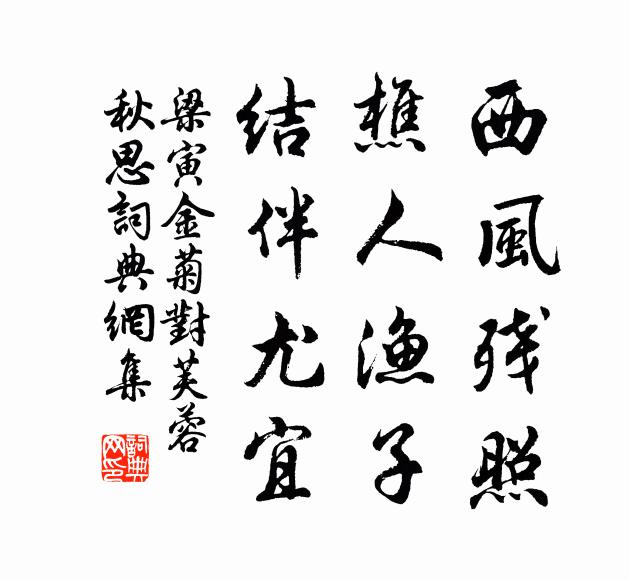 西風残照
樵人漁子
结伴尤宜
梁寅金菊對芙蓉
秋思詞典網集
詞典
网印